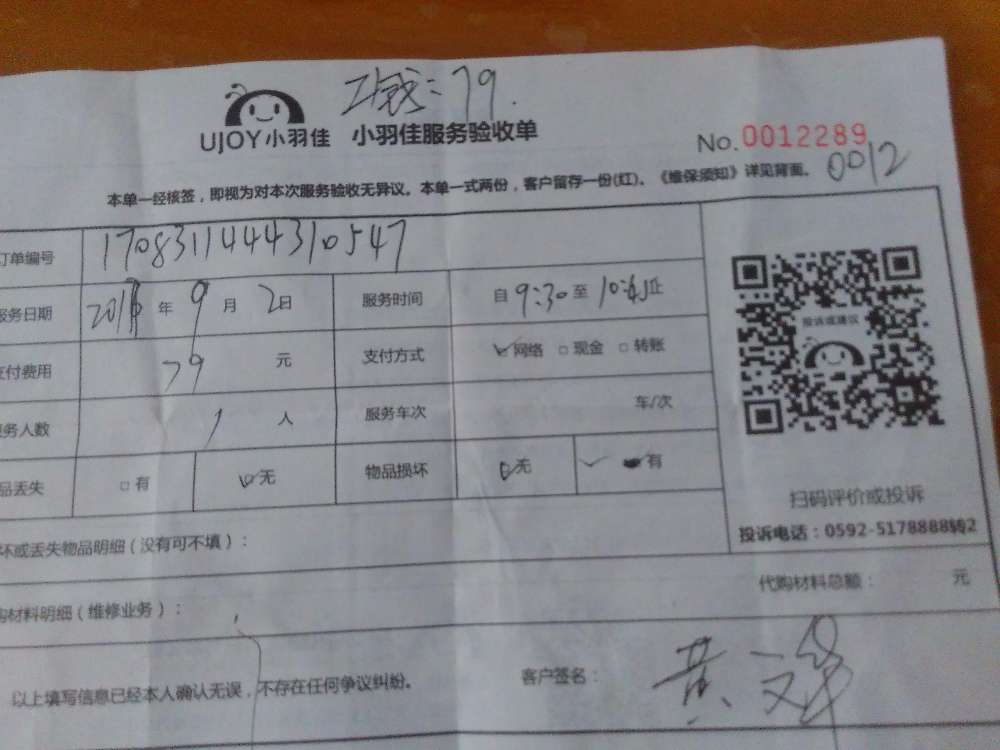 工钱：79.
UJOY小羽佳 小羽佳服务验收单
No.0012289
0012
本单一经核签，即视为对本次服务验收无异议。本单一式两份，客户留存一份(红)。《维保须知》详见背面。
订单编号 1708311444310547
服务日期 年 9月 2日 服务时间 自9:30至 止
支付费用 79 元 支付方式 ☑网络 □现金 □转账
服务人数 1 人 服务车次 车/次
品丢失 □有 ☑无 物品损坏 ☑无 ✓ 有
投诉或建议
扫码评价或投诉
投诉电话：0592-5178888转2
坏或丢失物品明细（没有可不填）：
购材料明细（维修业务）： 代购材料总额： 元
以上填写信息已经本人确认无误，不存在任何争议纠纷。 客户签名： 黄